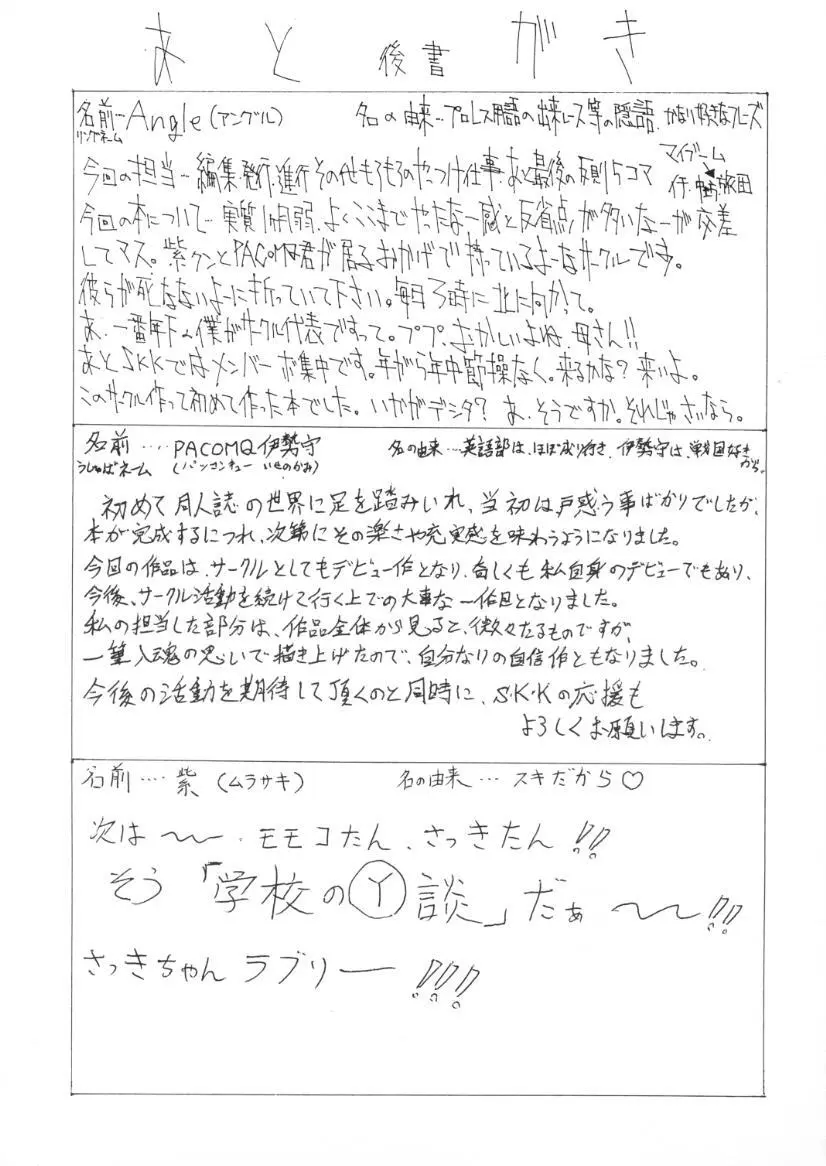 あと 後書 がき
名前…Angle(アングル) 名の由来…プロレス用語の出来レース等の隠語.かなり好きなフレーズ
リングネーム
マイブーム
今回の担当…編集.発行.進行その他もろもろのやっつけ仕事.あと最後の反則5コマ
今回の本について…実質1ヵ月弱.よくここまでやったな一感と反省点が多いなーが交差
してマス。紫クンとPACOMQ君が居るおかげで持っているよーなサークルです。
彼らが死なないよーに祈っていて下さい。毎日3時に北に向かって。
あ.一番年下の僕がサークル代表ですって。ププ.おかしいよね.母さん!!
あとSKKではメンバーボ集中です。年がら年中節操なく。来るかな?来いよ。
このサークル作って初めて作った本でした。いかがデシタ?あ.そうですか。それじゃさいなら。
名前…. PACOMQ伊勢守 名の由来…英語部は、ほぼ成り行き.伊勢守は、戦国好きから。
うしゅばネーム (パンコンキュー いせのかみ)
初めて同人誌の世界に足を踏みいれ、当初は戸惑う事ばかりでしたが、
本が完成するにつれ、次第にその楽さや充実感を味わうようになりました。
今回の作品は、サークルとしてもデビュー作となり、奇しくも私自身のデビューでもあり、
今後、サークル活動を続けて行く上での大事な一作目となりました。
私の担当した部分は、作品全体から見ると、微々たるものですが、
一筆入魂の思いで描き上げたので、自分なりの自信作ともなりました。
今後の活動を期待して頂くのと同時に、S・K・Kの応援も
よろしくお願いします。
名前…. 紫(ムラサキ) 名の由来… スキだから♡
次は〜〜.モモコたん、さっきたん!!
そう「学校のⓎ談」だぁ〜〜!!
さっきちゃんラブリー!!!